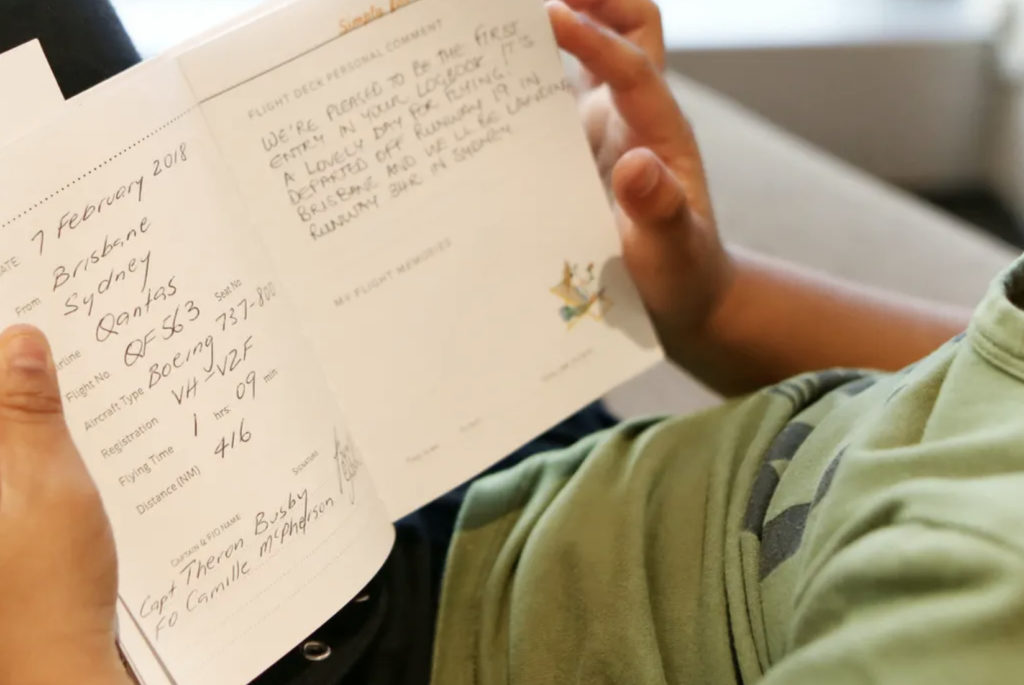 DATE 7 February 2018
From Brisbane
Sydney
Airline Qantas
Flight No. QF 563 Seat No
Aircraft Type Boeing 737-800
Registration VH-VZF
Flying Time 1 hrs 09 min
Distance (NM) 416
CAPTAIN & F/O NAME SIGNATURE
Capt Theron Busby
FO Camille McPherson
Simply
FLIGHT DECK PERSONAL COMMENT
WE'RE PLEASED TO BE THE FIRST
ENTRY IN YOUR LOGBOOK! IT'S
A LOVELY DAY FOR FLYING!
DEPARTED OFF RUNWAY 19 IN
BRISBANE AND WE'LL BE LANDING
RUNWAY 34R IN SYDNEY
MY FLIGHT MEMORIES